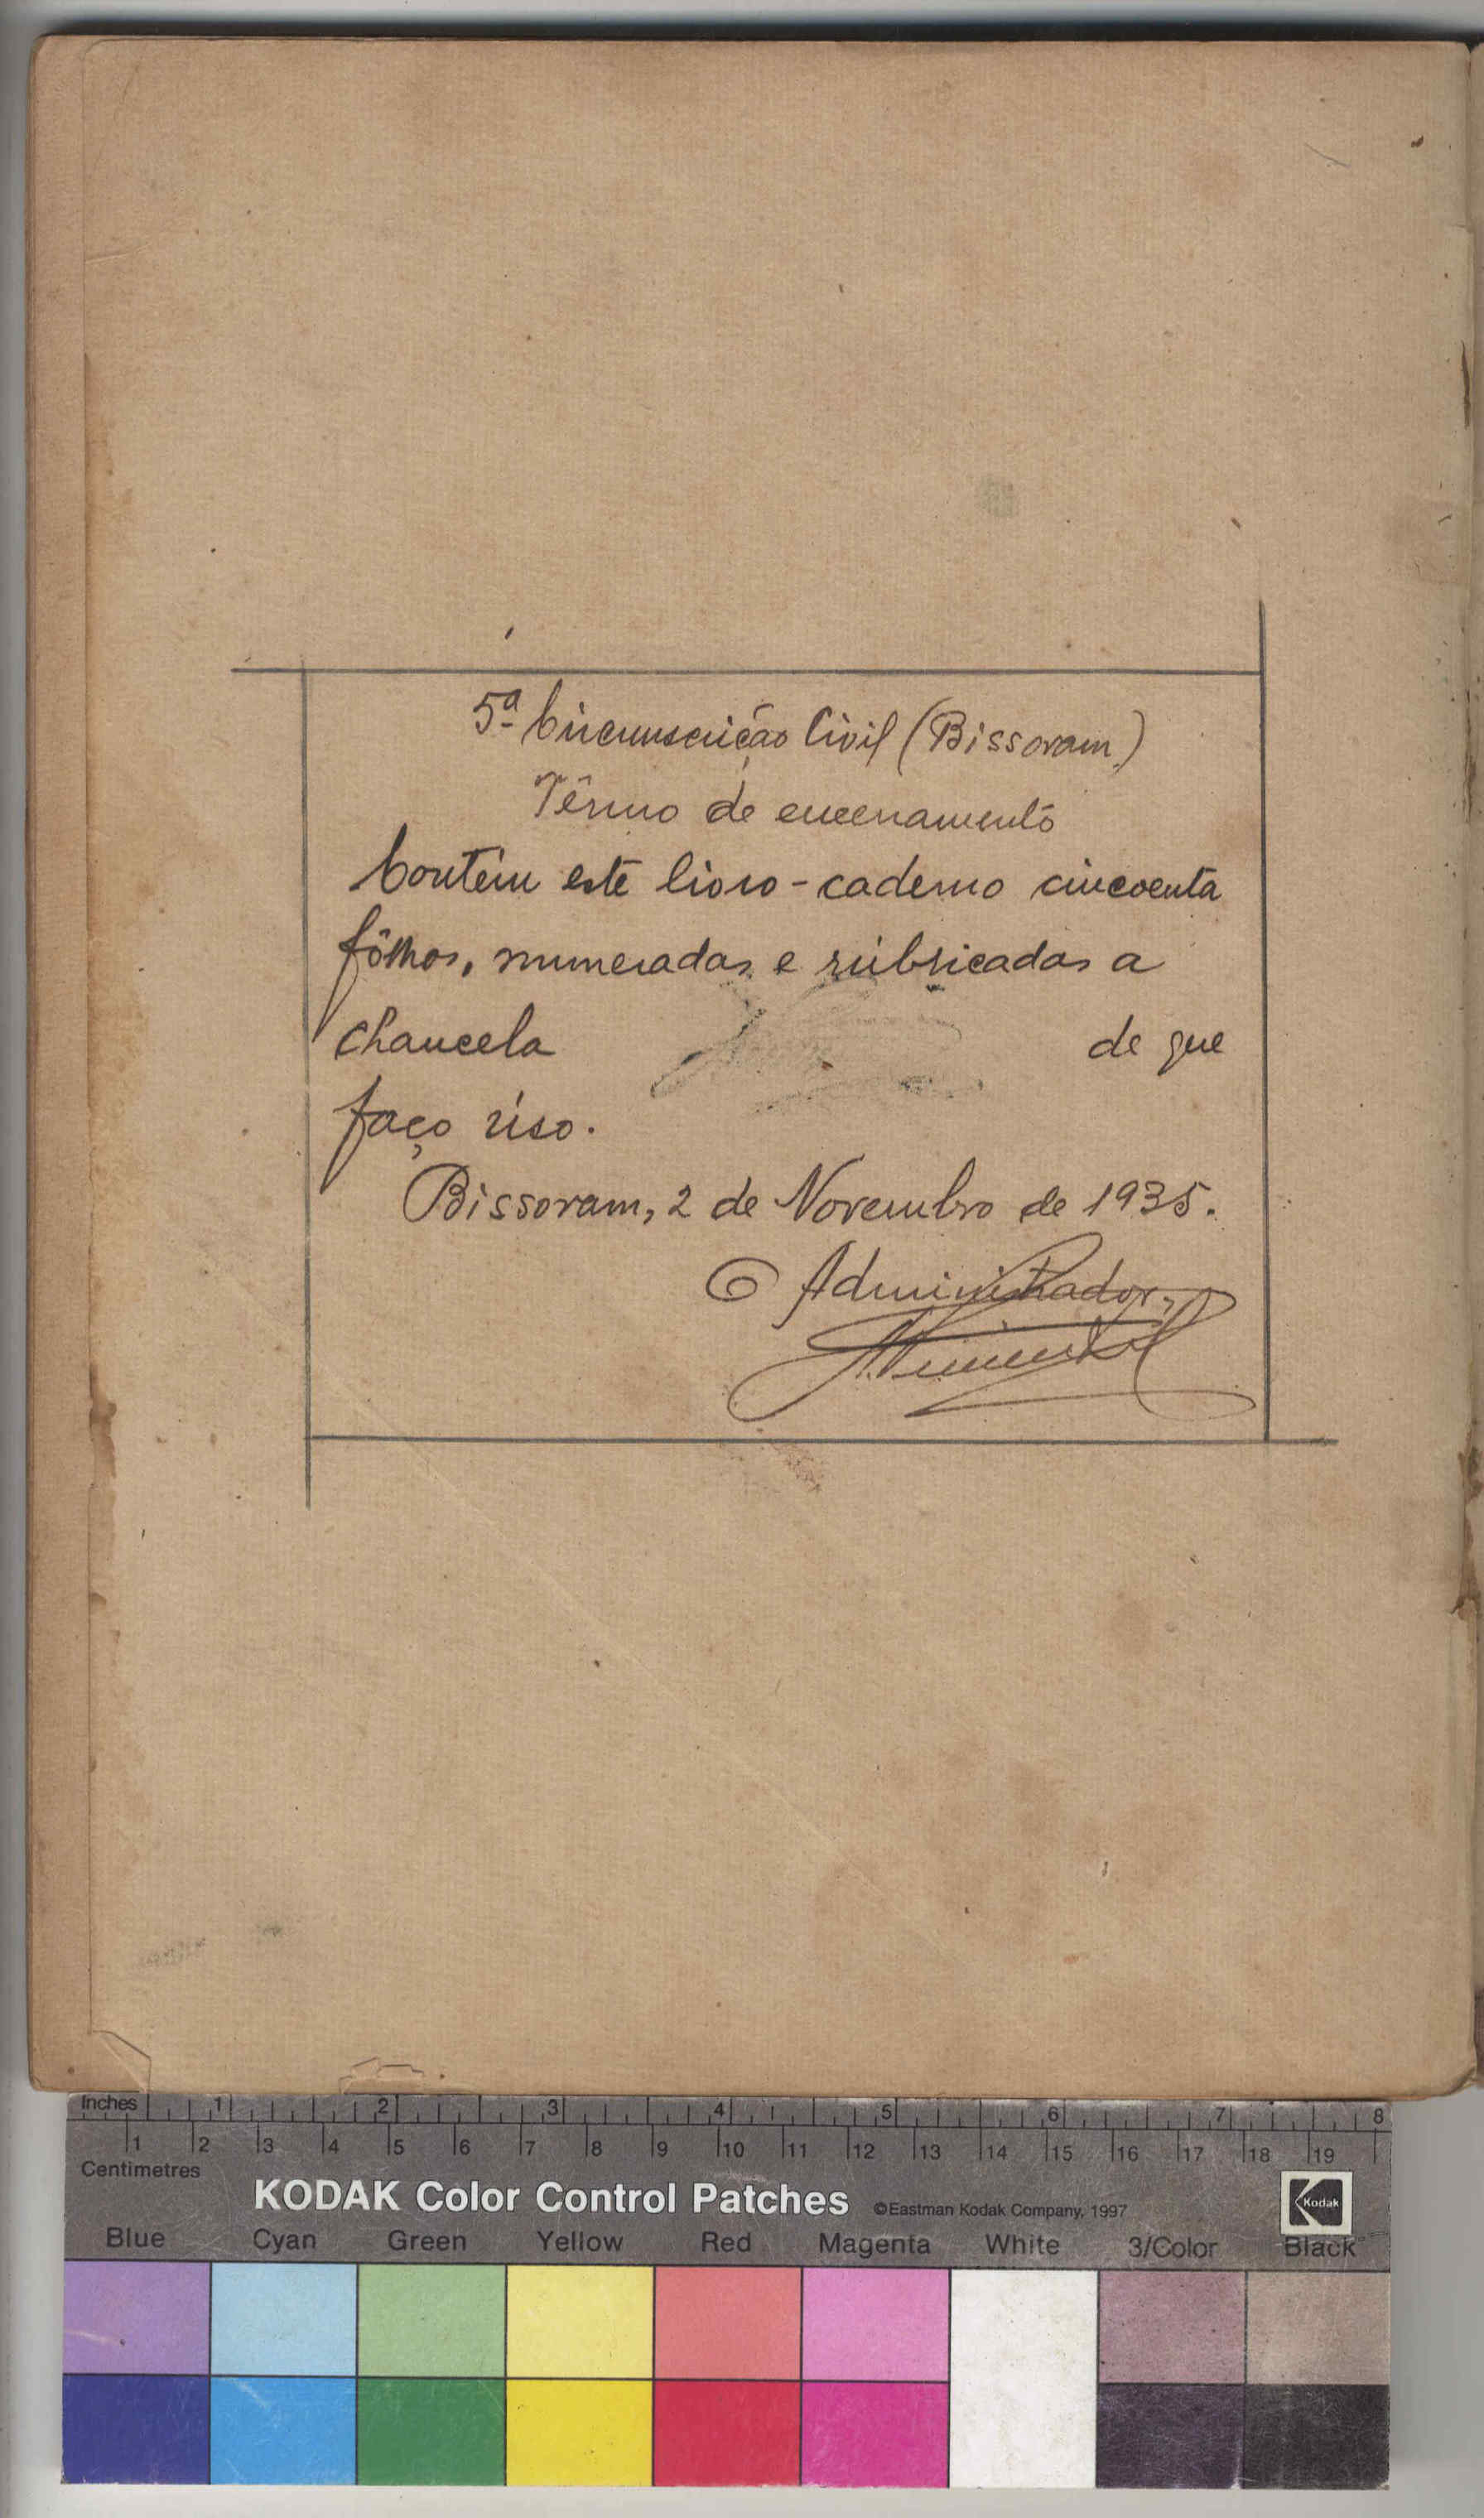 5ª Circunscrição Civil (Bissoram)
Têrmo de encerramento
Contém este livro-caderno cincoenta
fôlhas, numeradas e rúbricadas a
chancela de que
faço úso.
Bissoram, 2 de Novembro de 1935.
O Administrador,
Inches 1 2 3 4 5 6 7 8
1 2 3 4 5 6 7 8 9 10 11 12 13 14 15 16 17 18 19
Centimetres
KODAK Color Control Patches ©Eastman Kodak Company, 1997 Kodak
Blue Cyan Green Yellow Red Magenta White 3/Color Black